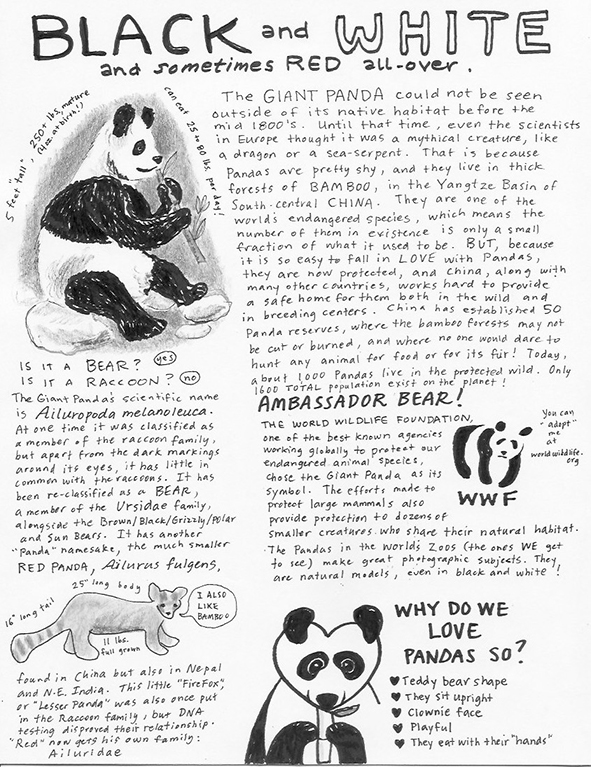 BLACK and WHITE
and sometimes RED all-over.
5 feet "tall", 250+ lbs. mature
(4oz. at birth!)
can eat 25 to 80 lbs. per day!
The GIANT PANDA could not be seen
outside of its native habitat before the
mid 1800's. Until that time, even the scientists
in Europe thought it was a mythical creature, like
a dragon or a sea-serpent. That is because
Pandas are pretty shy, and they live in thick
forests of BAMBOO, in the Yangtze Basin of
South-central CHINA. They are one of the
world's endangered species, which means the
number of them in existence is only a small
fraction of what it used to be. BUT, because
it is so easy to fall in LOVE with Pandas,
they are now protected, and China, along with
many other countries, works hard to provide
a safe home for them both in the wild and
in breeding centers. China has established 50
Panda reserves, where the bamboo forests may not
be cut or burned, and where no one would dare to
hunt any animal for food or for its fur! Today,
about 1,000 Pandas live in the protected wild. Only
1600 TOTAL population exist on the planet!
IS IT A BEAR? yes
IS IT A RACCOON? no
The Giant Panda's scientific name
is Ailuropoda melanoleuca.
At one time it was classified as
a member of the raccoon family,
but apart from the dark markings
around its eyes, it has little in
common with the raccoons. It has
been re-classified as a BEAR,
a member of the Ursidae family,
alongside the Brown/Black/Grizzly/Polar
and Sun Bears. It has another
"Panda" namesake, the much smaller
RED PANDA, Ailurus fulgens,
25" long body
16" long tail
11 lbs.
full grown
I ALSO
LIKE
BAMBOO
found in China but also in Nepal
and N.E. India. This little "FireFox",
or "Lesser Panda" was also once put
in the Raccoon family, but DNA
testing disproved their relationship.
"Red" now gets his own family:
Ailuridae
AMBASSADOR BEAR!
THE WORLD WILDLIFE FOUNDATION,
one of the best known agencies
working globally to protect our
endangered animal species,
chose the Giant Panda as its
symbol. The efforts made to
protect large mammals also
provide protection to dozens of
smaller creatures who share their natural habitat.
The Pandas in the World's Zoos (the ones WE get
to see) make great photographic subjects. They
are natural models, even in black and white!
WWF
You can
"adopt"
me
at
worldwildlife.
org
WHY DO WE
LOVE
PANDAS SO?
♥Teddy bear shape
♥They sit upright
♥Clownie face
♥Playful
♥They eat with their "hands"